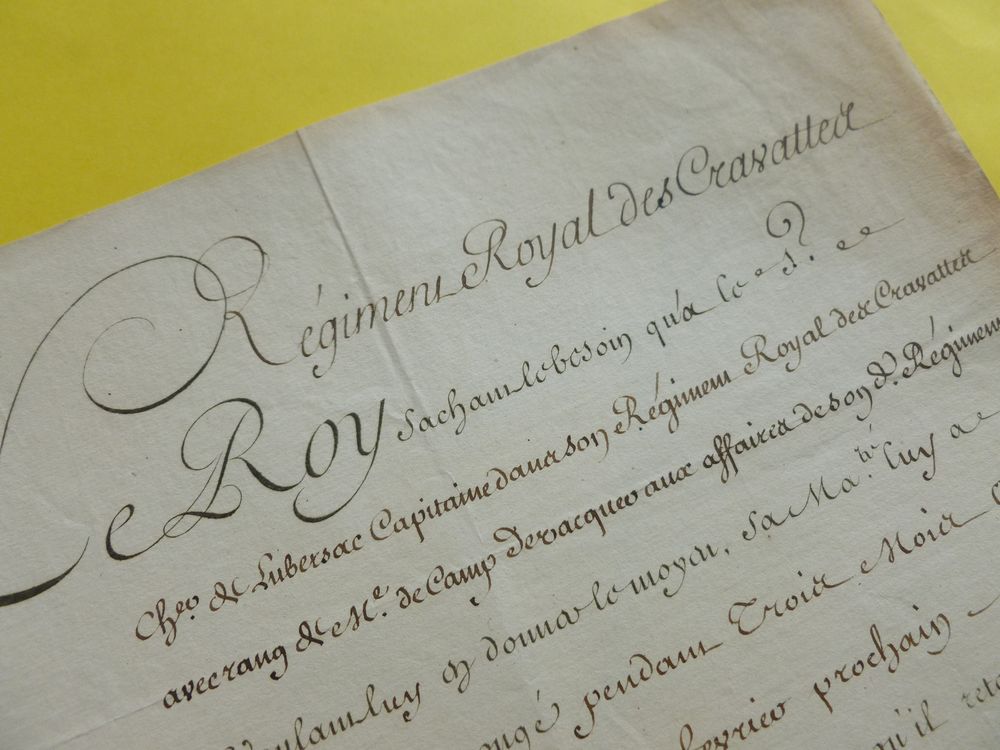 Régiment Royal des Cravattes
Le Roy sachant le besoin qu'a le S.
Cher. de Lubersac Capitaine dans son Régiment Royal des Cravattes
avec rang de Me. de Camp de vacquer aux affaires de son d. Régiment
voulant luy en donner le moyen, Sa Maté. luy a
congé pendant Trois Mois
fevrier prochain
qu'il